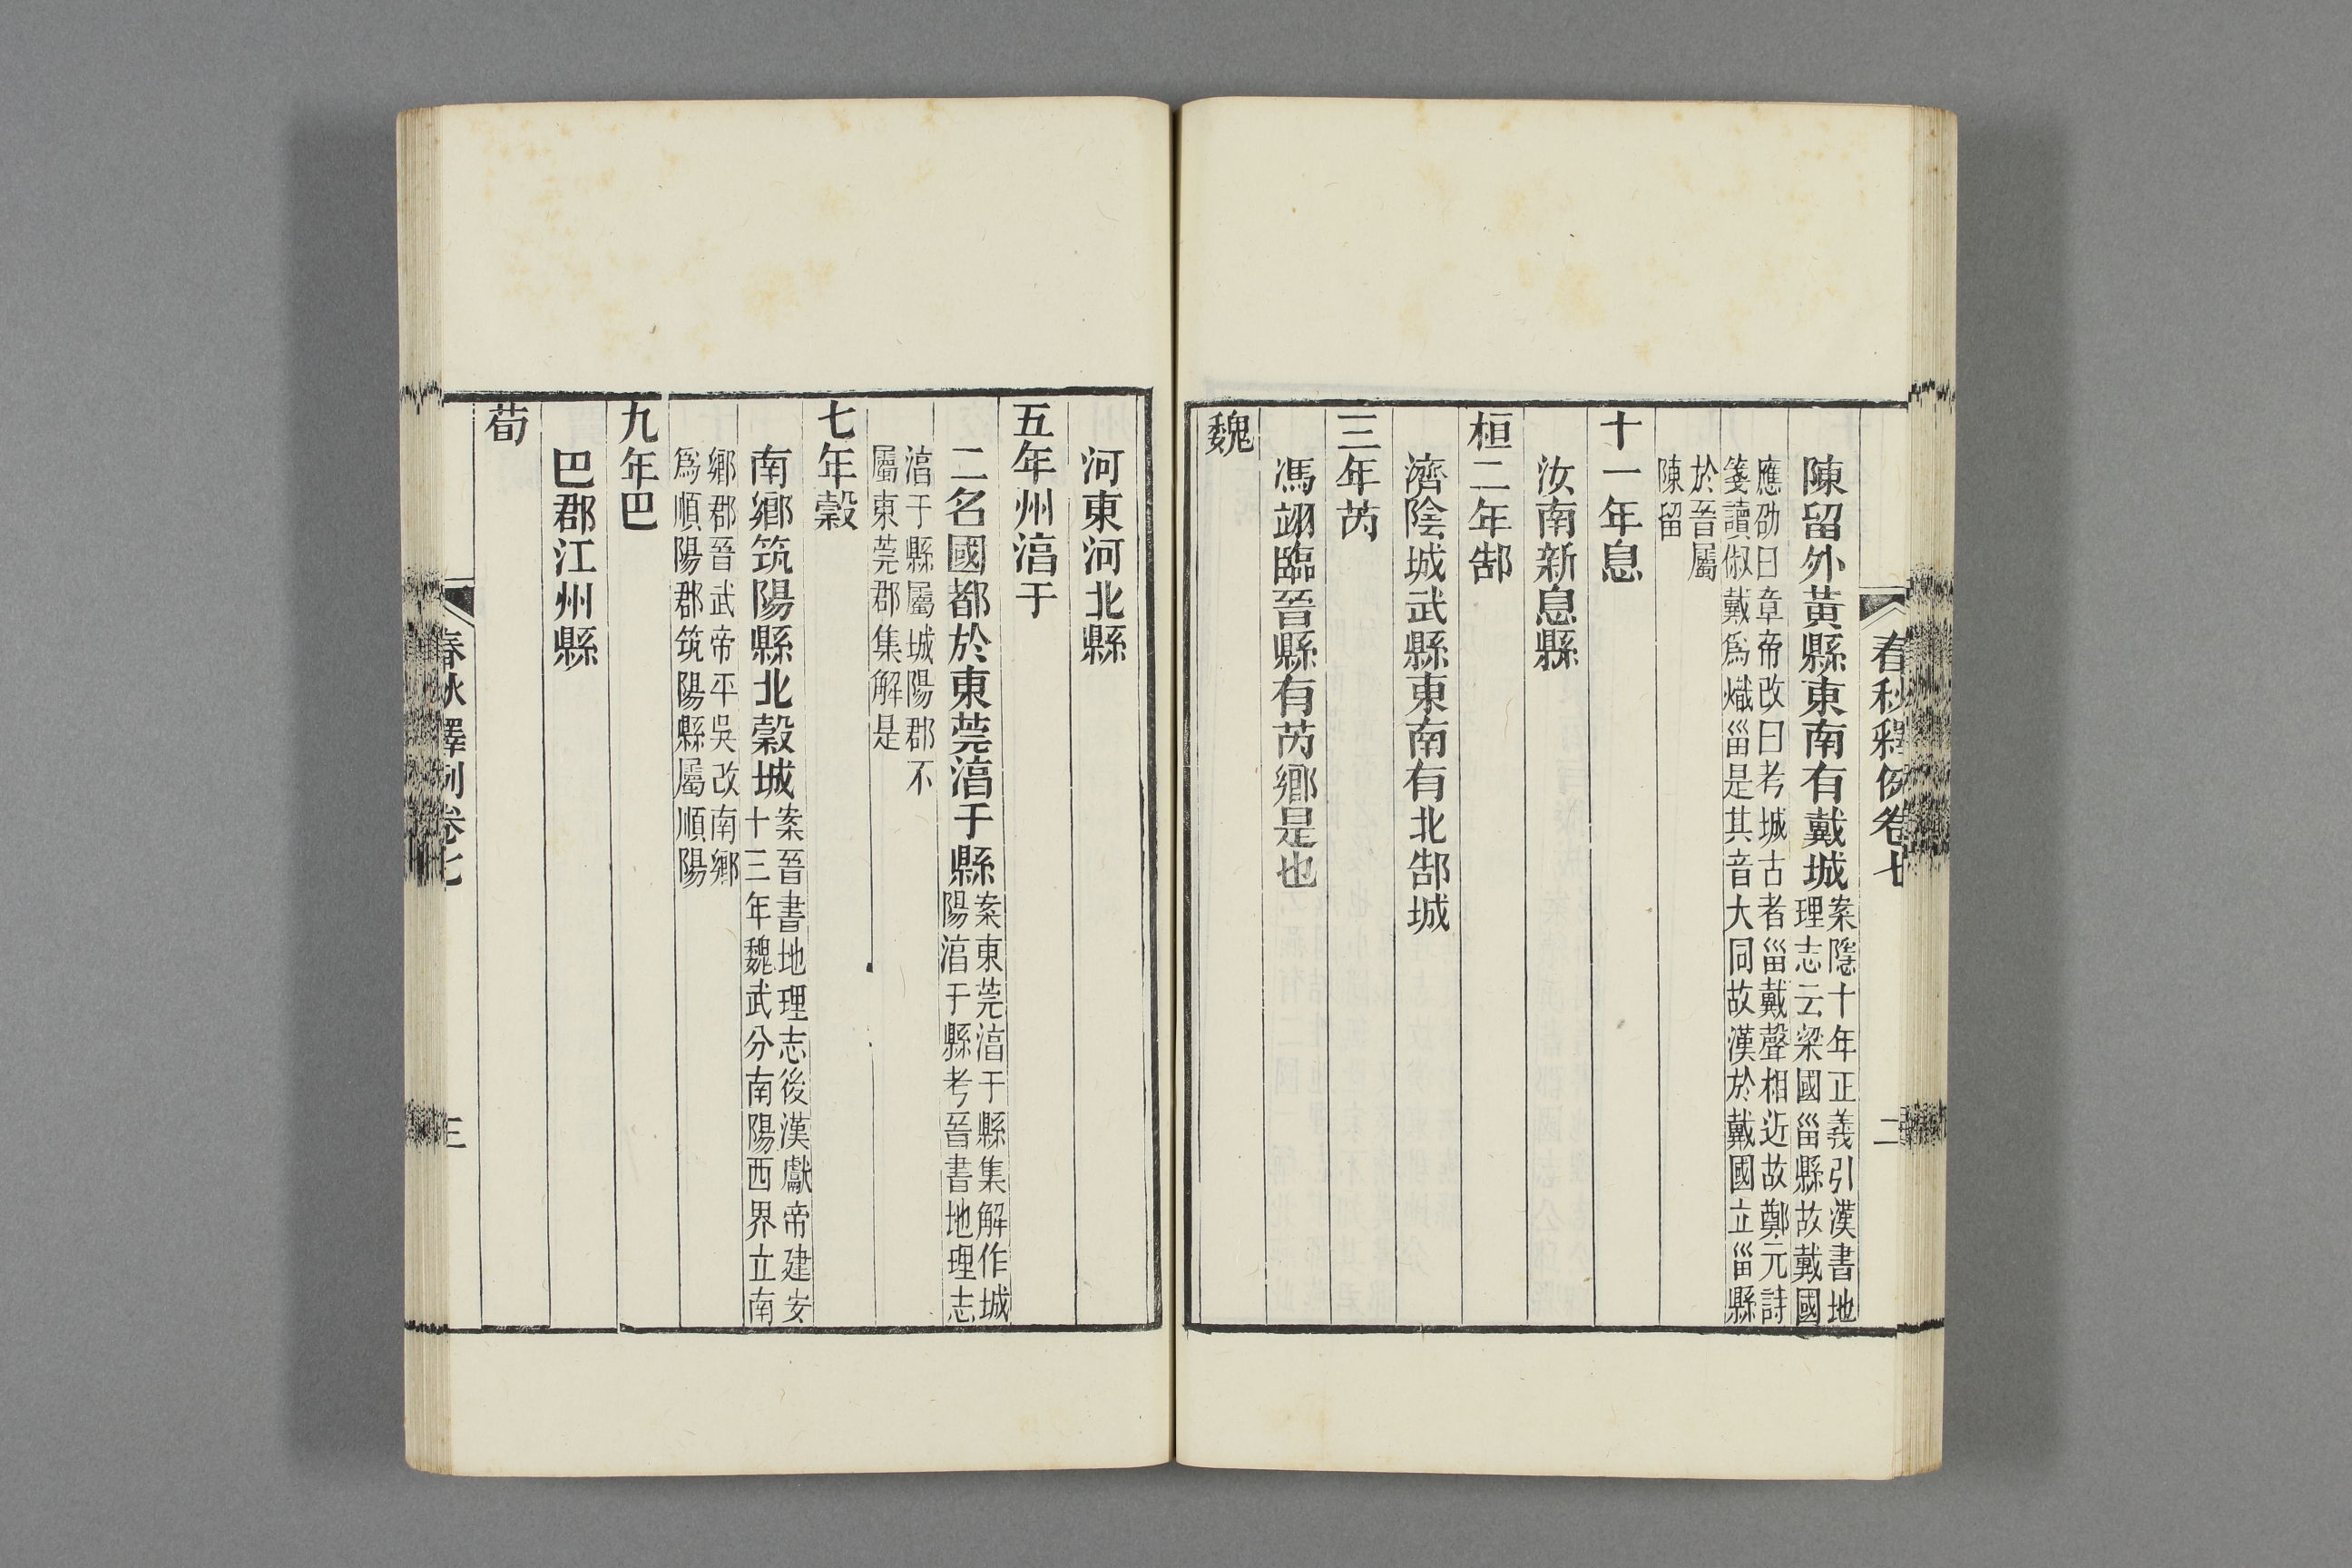 春秋釋例卷七
二
陳留外黃縣東南有戴城案隱十年正義引漢書地
理志云梁國甾縣故戴國
應劭曰章帝改曰考城古者甾戴聲相近故鄭元詩
箋讀俶戴爲熾甾是其音大同故漢於戴國立甾縣
於晉屬
陳留
十一年息
汝南新息縣
桓二年郜
濟陰城武縣東南有北郜城
三年芮
馮翊臨晉縣有芮鄉是也
魏
河東河北縣
五年州湻于
二名國都於東莞湻于縣案東莞湻于縣集解作城
陽湻于縣考晉書地理志
湻于縣屬城陽郡不
屬東莞郡集解是
七年穀
南鄉筑陽縣北穀城案晉書地理志後漢獻帝建安
十三年魏武分南陽西界立南
鄉郡晉武帝平吳改南鄉
爲順陽郡筑陽縣屬順陽
九年巴
巴郡江州縣
荀
春秋釋例卷七
三